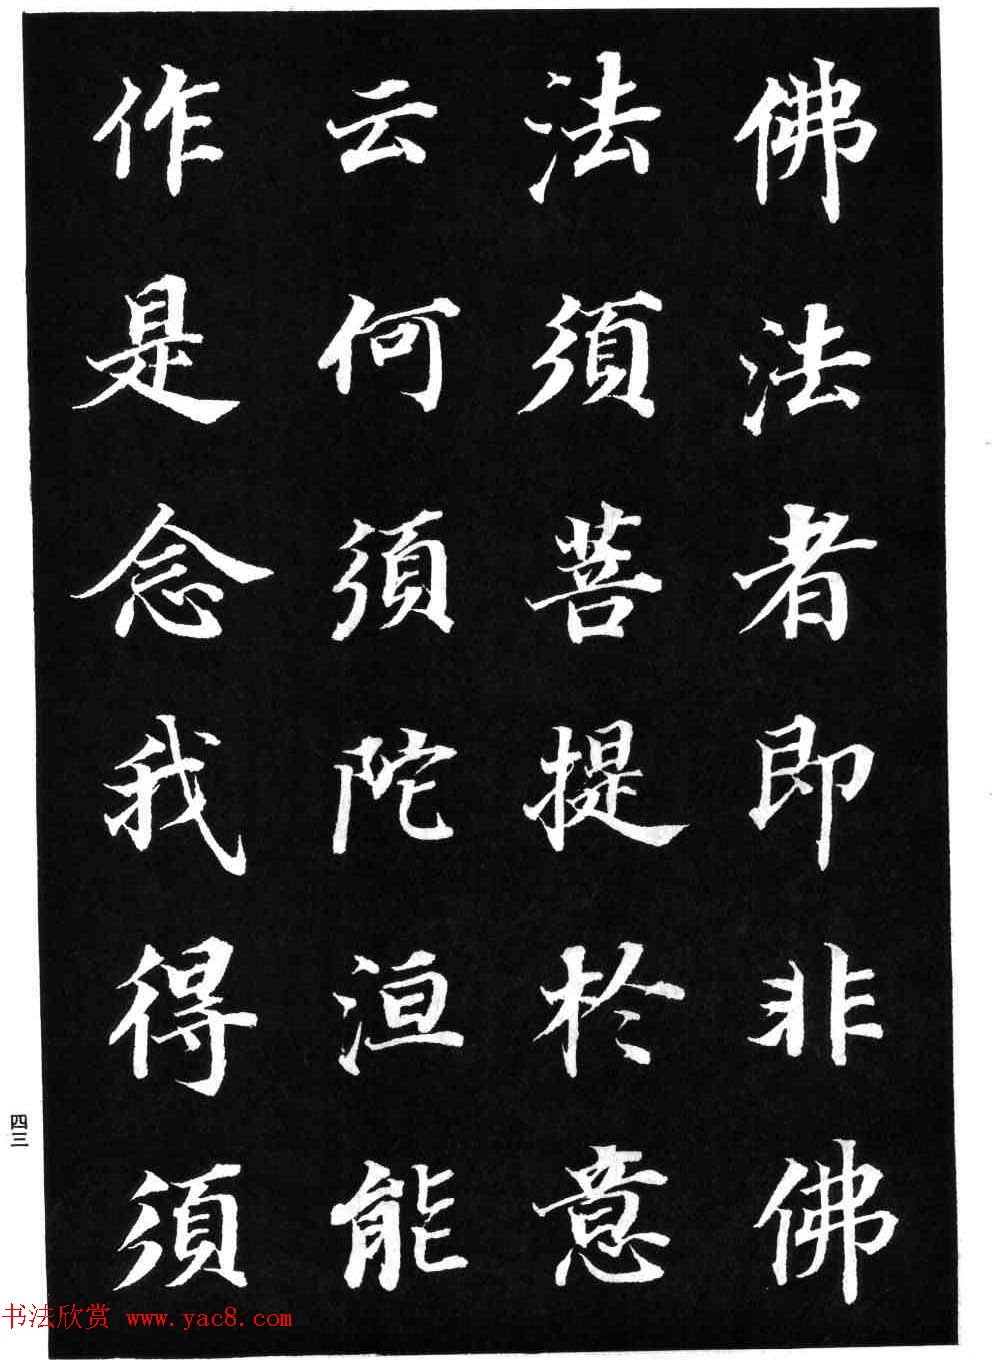 佛法者即非佛
法須菩提於意
云何須陀洹能
作是念我得須
四三
书法欣赏 www.yac8.com